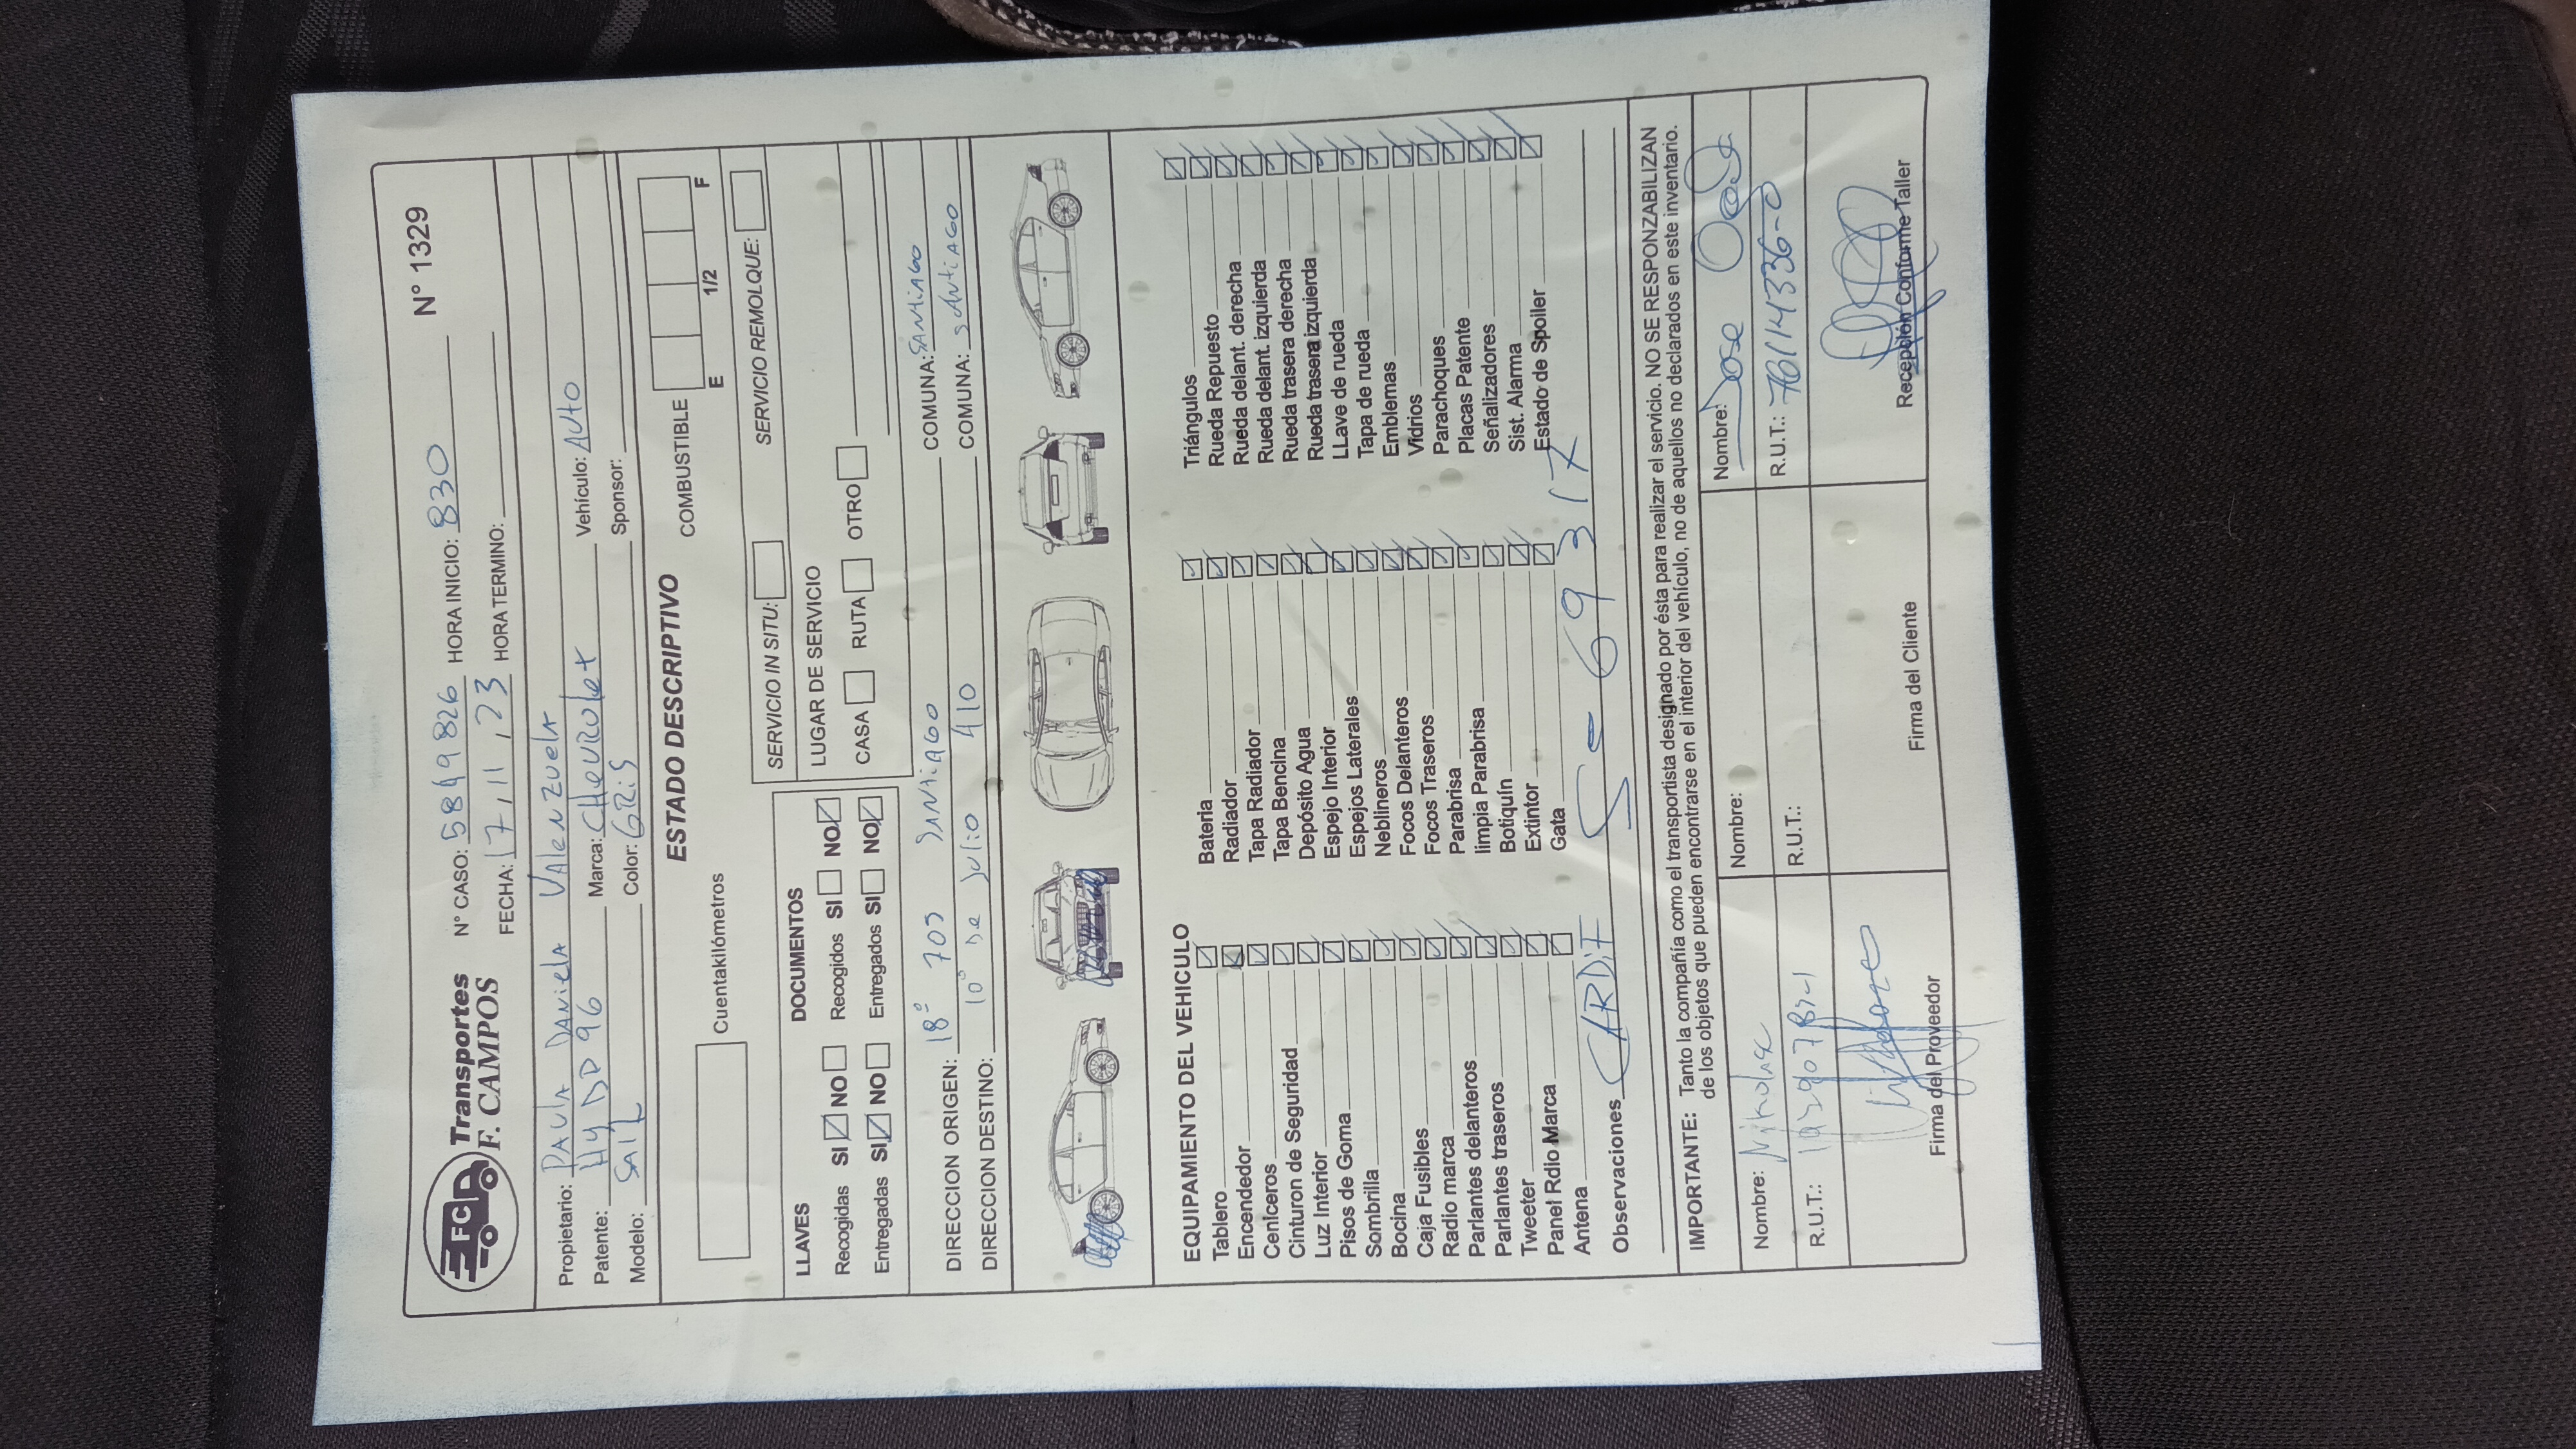 FC Transportes F. CAMPOS
N° CASO: 5849826 HORA INICIO: 830 N° 1329
FECHA: 17, 11, 23 HORA TERMINO:
Propietario: PAULA DANIELA VALENZUELA
Patente: HYDD96 Marca: CHEVROLET Vehículo: AUTO
Modelo: SAIL Color: GRIS Sponsor:
ESTADO DESCRIPTIVO
Cuentakilómetros COMBUSTIBLE
E 1/2 F
LLAVES DOCUMENTOS
Recogidas SI NO Recogidos SI NO
Entregadas SI NO Entregados SI NO
SERVICIO IN SITU: SERVICIO REMOLQUE:
LUGAR DE SERVICIO
CASA RUTA OTRO
DIRECCION ORIGEN: 18° 703 SANTIAGO COMUNA: SANTIAGO
DIRECCION DESTINO: 10° De Julio 410 COMUNA: SANTIAGO
EQUIPAMIENTO DEL VEHICULO
Tablero
Encendedor
Ceniceros
Cinturon de Seguridad
Luz Interior
Pisos de Goma
Sombrilla
Bocina
Caja Fusibles
Radio marca
Parlantes delanteros
Parlantes traseros
Tweeter
Panel Rdio Marca
Antena
Bateria
Radiador
Tapa Radiador
Tapa Bencina
Depósito Agua
Espejo Interior
Espejos Laterales
Neblineros
Focos Delanteros
Focos Traseros
Parabrisa
limpia Parabrisa
Botiquín
Extintor
Gata
Triángulos
Rueda Repuesto
Rueda delant. derecha
Rueda delant. izquierda
Rueda trasera derecha
Rueda trasera izquierda
LLave de rueda
Tapa de rueda
Emblemas
Vidrios
Parachoques
Placas Patente
Señalizadores
Sist. Alarma
Estado de Spoiler
Observaciones CARDIF 69317
IMPORTANTE: Tanto la compañía como el transportista designado por ésta para realizar el servicio. NO SE RESPONZABILIZAN
de los objetos que pueden encontrarse en el interior del vehículo, no de aquellos no declarados en este inventario.
Nombre: Nombre: Nombre: Jose
R.U.T.: R.U.T.: R.U.T.: 76114336-0
Firma del Proveedor Firma del Cliente Recepción Conforme Taller